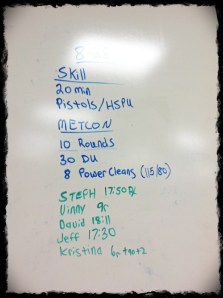 Skill
20 min
Pistols/HSPU
METCON
10 Rounds
30 DU
8 Power Cleans (115/80)
STEPH 17:50 Rx
Vinny 9r
David 18:11
Jeff 17:30
Kristina 6r